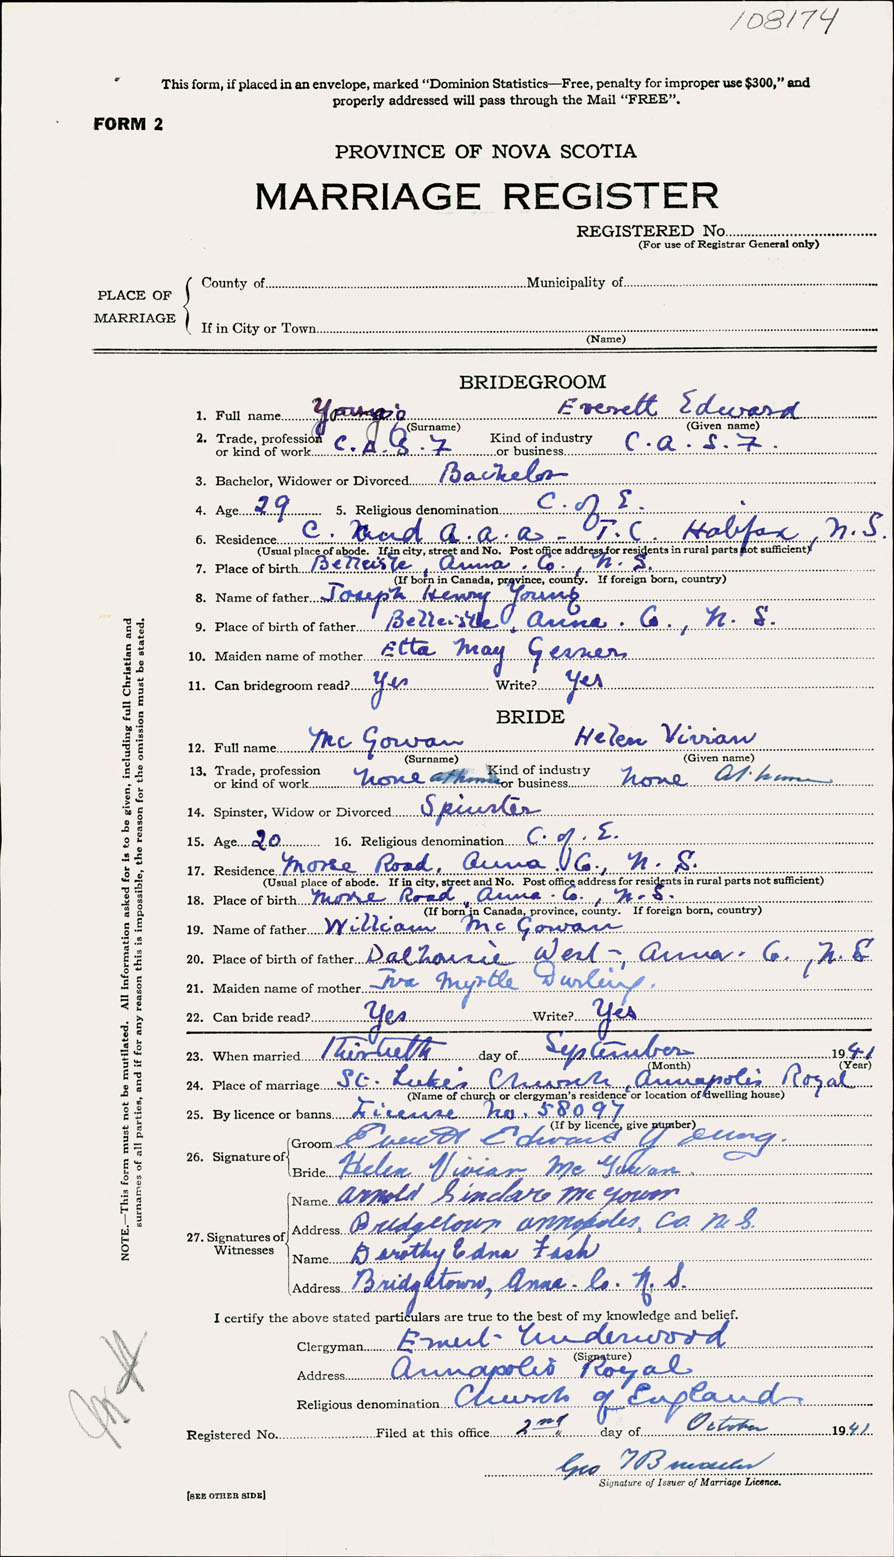 108174
This form, if placed in an envelope, marked "Dominion Statistics—Free, penalty for improper use $300," and
properly addressed will pass through the Mail "FREE".
FORM 2
PROVINCE OF NOVA SCOTIA
MARRIAGE REGISTER
REGISTERED No.
(For use of Registrar General only)
PLACE OF MARRIAGE
County of Municipality of
If in City or Town
(Name)
BRIDEGROOM
1. Full name Young Everett Edward
(Surname) (Given name)
2. Trade, profession or kind of work C.A.S.F Kind of industry or business C.A.S.F.
3. Bachelor, Widower or Divorced Bachelor
4. Age 29 5. Religious denomination C. of E.
6. Residence C. A.A.A. - T.C. Halifax, N.S.
(Usual place of abode. If in city, street and No. Post office address for residents in rural parts not sufficient)
7. Place of birth Belleisle, Anna. Co., N.S.
(If born in Canada, province, county. If foreign born, country)
8. Name of father Joseph Henry Young
9. Place of birth of father Belleisle, Anna. Co., N. S.
10. Maiden name of mother Etta May Gesner
11. Can bridegroom read? Yes Write? Yes
BRIDE
12. Full name McGowan Helen Vivian
(Surname) (Given name)
13. Trade, profession or kind of work None at home Kind of industry or business None At home
14. Spinster, Widow or Divorced Spinster
15. Age 20 16. Religious denomination C. of E.
17. Residence Morse Road, Anna. Co., N. S.
(Usual place of abode. If in city, street and No. Post office address for residents in rural parts not sufficient)
18. Place of birth Morse Road, Anna. Co., N.S.
(If born in Canada, province, county. If foreign born, country)
19. Name of father William McGowan
20. Place of birth of father Dalhousie West, Anna. Co., N.S
21. Maiden name of mother Iva Myrtle Durling.
22. Can bride read? Yes Write? Yes
23. When married Thirtieth day of September 1941
(Month) (Year)
24. Place of marriage St. Luke's Church, Annapolis Royal
(Name of church or clergyman's residence or location of dwelling house)
25. By licence or banns License No. 58097
(If by licence, give number)
26. Signature of Groom Everett Edward Young.
Bride Helen Vivian McGowan.
27. Signatures of Witnesses
Name Arnold Sinclare McGowan
Address Bridgetown Annapoles, Co. N.S.
Name Dorothy Edna Fash
Address Bridgetown, Anna. Co. N.S.
I certify the above stated particulars are true to the best of my knowledge and belief.
Clergyman Ernest Underwood
(Signature)
Address Annapolis Royal
Religious denomination Church of England
Registered No. Filed at this office 2nd day of October 1941.
Geo
Signature of Issuer of Marriage Licence.
[SEE OTHER SIDE]
NOTE.—This form must not be mutilated. All information asked for is to be given, including full Christian and
surnames of all parties, and if for any reason this is impossible, the reason for the omission must be stated.